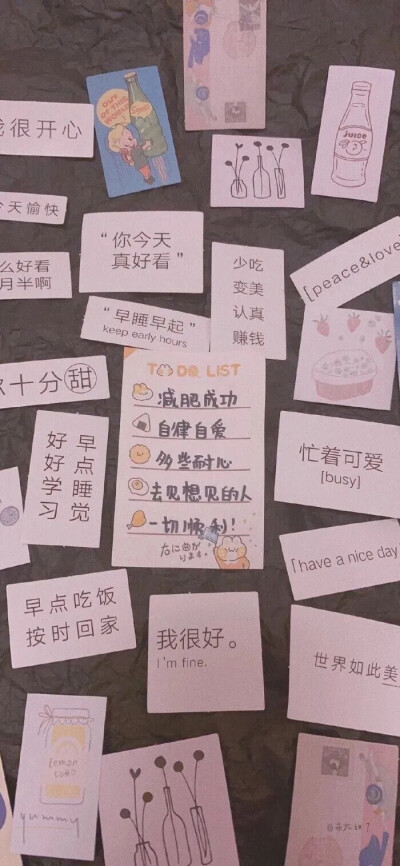 OUT OF THIS WORLD
JUICE
我很开心
今天愉快
“你今天
真好看”
少吃
变美
认真
赚钱
[peace&love]
么好看
月半啊
“早睡早起”
keep early hours
TO DO LIST
减肥成功
自律自爱
多些耐心
去见想见的人
一切顺利！
右に曲がります。
十分甜
早点睡觉
好好学习
忙着可爱
[busy]
「have a nice day
早点吃饭
按时回家
我很好。
I'm fine.
世界如此美
lemon
yummy